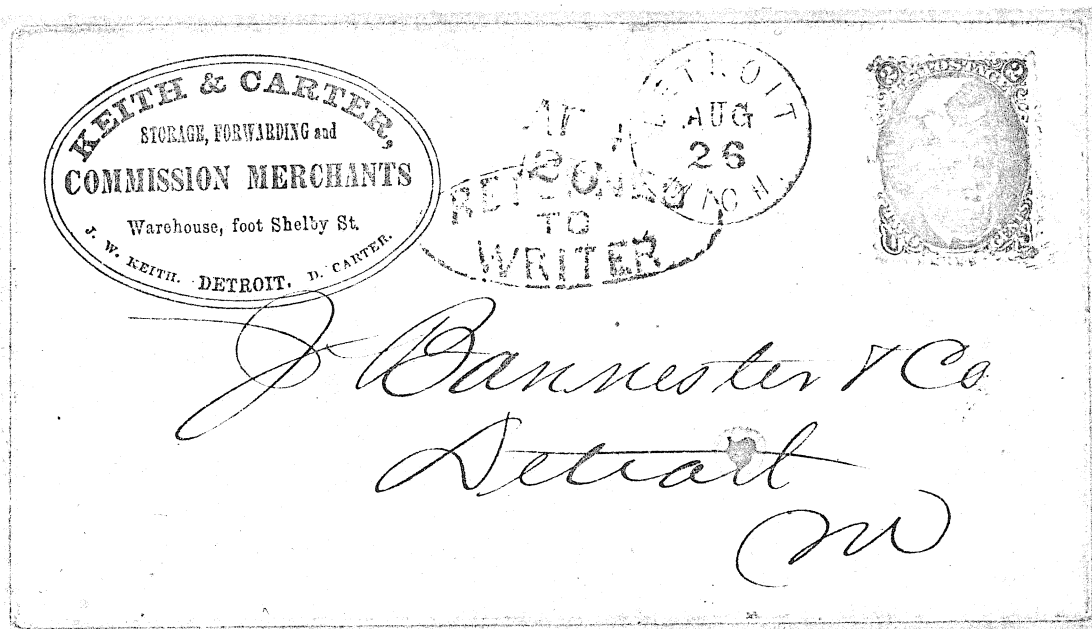 KEITH & CARTER,
STORAGE, FORWARDING and
COMMISSION MERCHANTS
Warehouse, foot Shelby St.
J. W. KEITH. DETROIT. D. CARTER.
DETROIT
AUG
26
MICH.
RETURNED
TO
WRITER
J Bannester & Co
Detroit
M